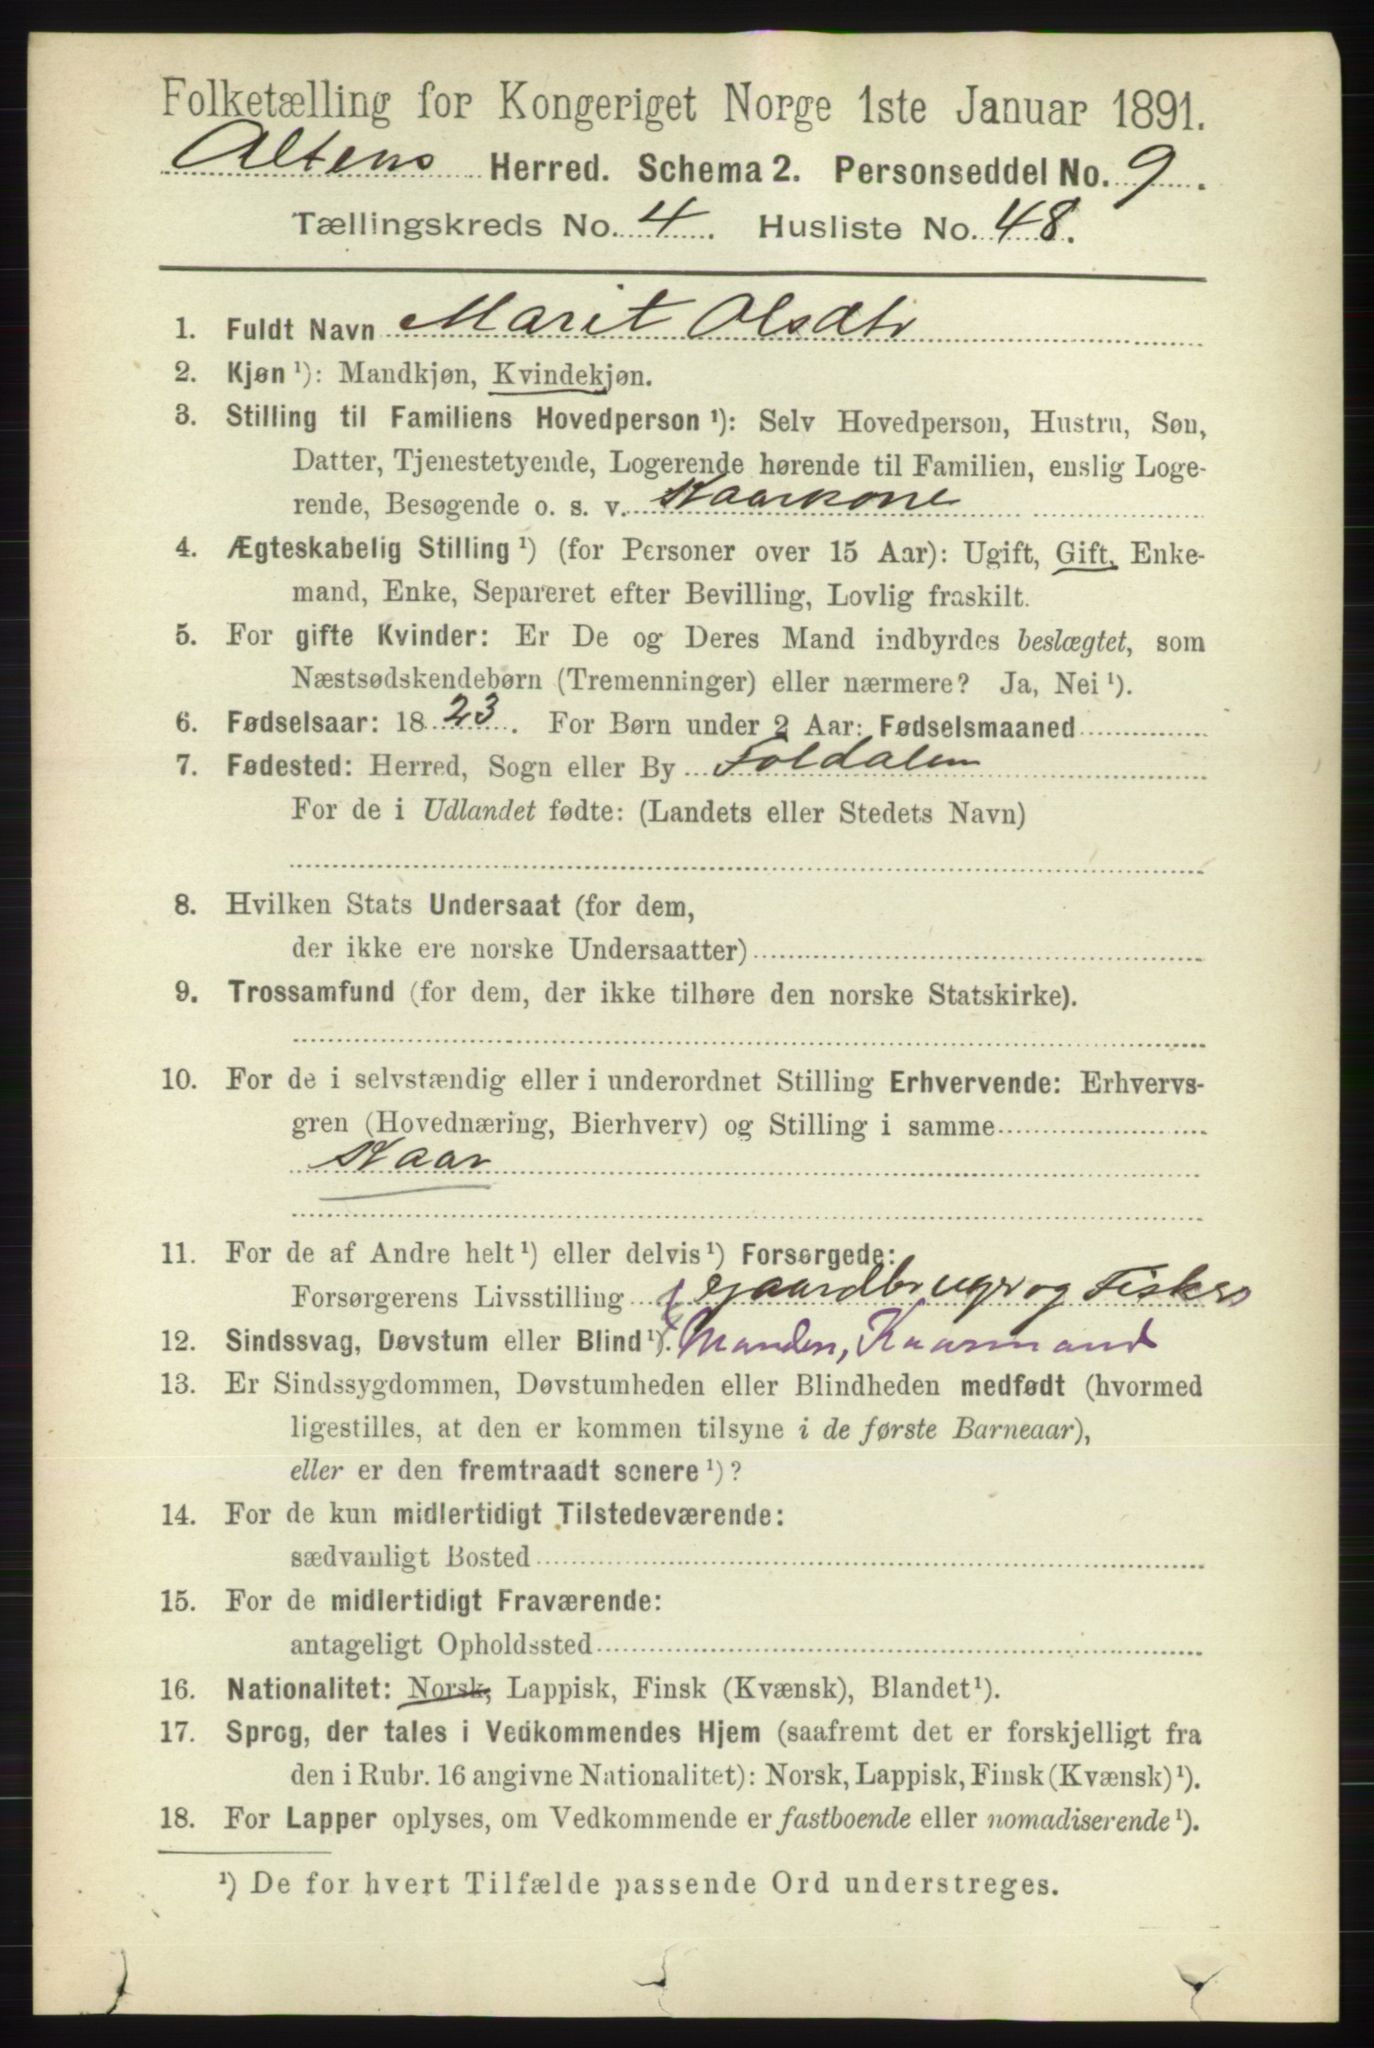 Folketælling for Kongeriget Norge 1ste Januar 1891.
Altens Herred. Schema 2. Personseddel No. 9.
Tællingskreds No. 4. Husliste No. 48.
1. Fuldt Navn Marit Olsdtr
2. Kjøn ¹): Mandkjøn, Kvindekjøn.
3. Stilling til Familiens Hovedperson ¹): Selv Hovedperson, Hustru, Søn,
Datter, Tjenestetyende, Logerende hørende til Familien, enslig Loge-
rende, Besøgende o. s. v. Kaarkone
4. Ægteskabelig Stilling ¹) (for Personer over 15 Aar): Ugift, Gift, Enke-
mand, Enke, Separeret efter Bevilling, Lovlig fraskilt.
5. For gifte Kvinder: Er De og Deres Mand indbyrdes beslægtet, som
Næstsødskendebørn (Tremenninger) eller nærmere? Ja, Nei ¹).
6. Fødselsaar: 1823. For Børn under 2 Aar: Fødselsmaaned
7. Fødested: Herred, Sogn eller By Foldalen
For de i Udlandet fødte: (Landets eller Stedets Navn)
8. Hvilken Stats Undersaat (for dem,
der ikke ere norske Undersaatter)
9. Trossamfund (for dem, der ikke tilhøre den norske Statskirke).
10. For de i selvstændig eller i underordnet Stilling Erhvervende: Erhvervs-
gren (Hovednæring, Bierhverv) og Stilling i samme
Kaar
11. For de af Andre helt ¹) eller delvis ¹) Forsørgede:
Forsørgerens Livsstilling Gaardbruger og Fisker
12. Sindssvag, Døvstum eller Blind ¹). Manden, Kaarmand
13. Er Sindssygdommen, Døvstumheden eller Blindheden medfødt (hvormed
ligestilles, at den er kommen tilsyne i de første Barneaar),
eller er den fremtraadt senere ¹)?
14. For de kun midlertidigt Tilstedeværende:
sædvanligt Bosted
15. For de midlertidigt Fraværende:
antageligt Opholdssted
16. Nationalitet: Norsk, Lappisk, Finsk (Kvænsk), Blandet ¹).
17. Sprog, der tales i Vedkommendes Hjem (saafremt det er forskjelligt fra
den i Rubr. 16 angivne Nationalitet): Norsk, Lappisk, Finsk (Kvænsk) ¹).
18. For Lapper oplyses, om Vedkommende er fastboende eller nomadiserende ¹).
¹) De for hvert Tilfælde passende Ord understreges.